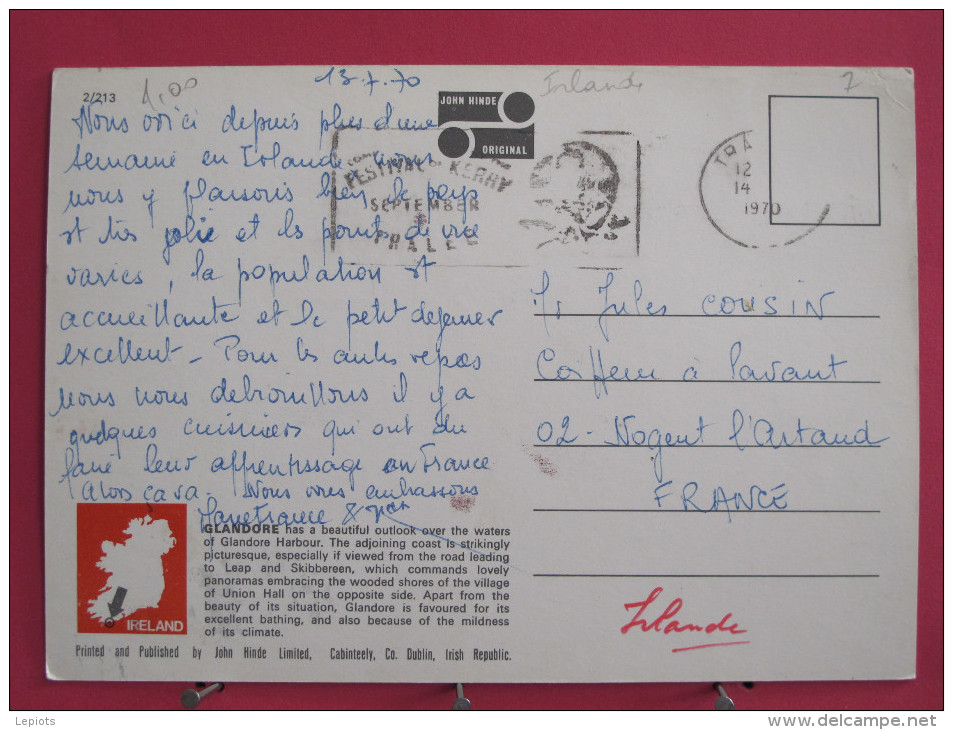 2/213
1,00
13.7.70
Irlande
7
JOHN HINDE
ORIGINAL
FESTIVAL OF KERRY
SEPTEMBER
TRALEE
TRA
12
14
1970
Nous voici depuis plus d'une
semaine en Irlande nous
nous y plaisons bien le pays
st très jolie et les points de vue
varies, la population st
accueillante et le petit dejeuner
excellent - Pour les autres repas
nous nous debrouillons il y a
quelques cuisiniers qui ont du
faire leur apprentissage en France
Alors ça va. Nous vous embrassons
Mr Jules COUSIN
Coiffeur à Pavant
02 - Nogent l'Artaud
FRANCE
Irlande
GLANDORE has a beautiful outlook over the waters
of Glandore Harbour. The adjoining coast is strikingly
picturesque, especially if viewed from the road leading
to Leap and Skibbereen, which commands lovely
panoramas embracing the wooded shores of the village
of Union Hall on the opposite side. Apart from the
beauty of its situation, Glandore is favoured for its
excellent bathing, and also because of the mildness
of its climate.
IRELAND
Printed and Published by John Hinde Limited, Cabinteely, Co. Dublin, Irish Republic.
Lepiots
www.delcampe.net